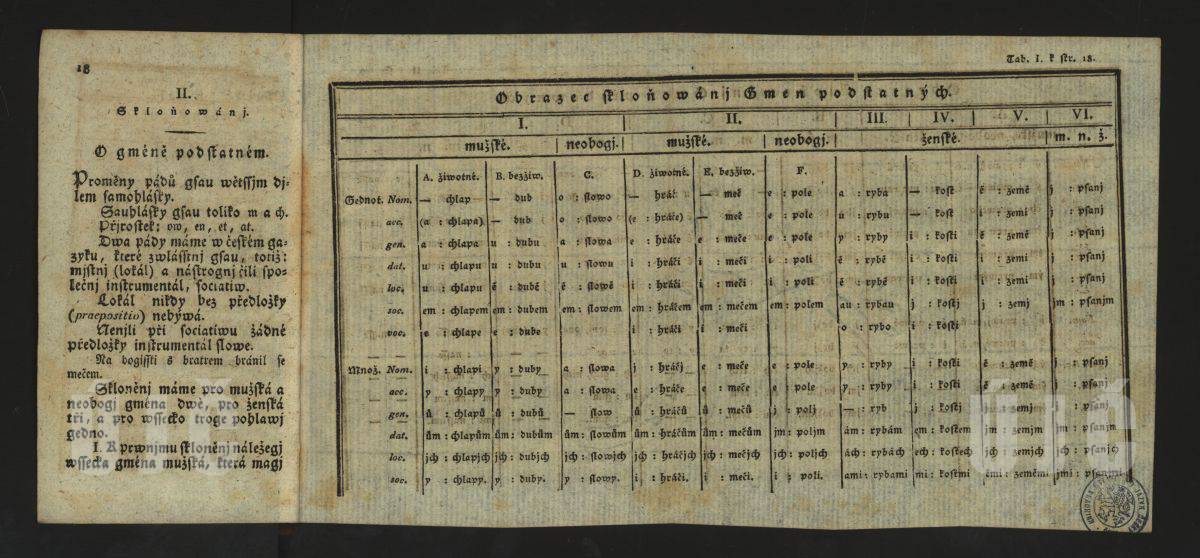 18
II.
Skloňowánj.
O gméně podstatném.
Proměny pádů gsau wětssjm dj-
lem samohlásky.
Sauhlásky gsau toliko m a ch.
Přjrostek: ow, en, et, at.
Dwa pády máme w českém ga-
zyku, které zwlásstnj gsau, totiž:
mjstnj (lokál) a nástrognj čili spo-
lečnj instrumentál, sociatiw.
Lokál nikdy bez předložky
(praepositio) nebýwá.
Nenjli při sociatiwu žádné
předložky instrumentál slowe.
Na bogissti s bratrem bránil se
mečem.
Skloněnj máme pro mužská a
neobogj gména dwě, pro ženská
tři, a pro wssecko troge pohlawj
gedno.
I. K prwnjmu skloněnj náležegj
wssecka gména mužská, která magj
Tab. I. k str. 18.
Obrazec skloňowánj Gmen podstatných.
I. II. III. IV. V. VI.
mužské. neobogj. mužské. neobogj. ženské. m. n. ž.
A. žiwotné. B. bezžiw. C. D. žiwotné. E. bezžiw. F.
Gednot. Nom. — chlap — dub o : slowo — hráč — meč e : pole a : ryba — kost ě : země j : psanj
acc. (a : chlapa) — dub o : slowo (e : hráče) — meč e : pole u : rybu — kost i : zemi j : psanj
gen. a : chlapa u : dubu a : slowa e : hráče e : meče e : pole y : ryby i : kosti ě : země j : psanj
dat. u : chlapu u : dubu u : slowu i : hráči i : meči i : poli ě : rybě i : kosti i : zemi j : psanj
loc. u : chlapu ě : dubě ě : slowě i : hráči i : meči i : poli ě : rybě i : kosti i : zemi j : psanj
soc. em : chlapem em : dubem em : slowem em : hráčem em : mečem em : polem au : rybau j : kostj j : zemj jm : psanjm
voc. e : chlape e : dube i : hráči i : meči o : rybo i : kosti
Množ. Nom. i : chlapi y : duby a : slowa j : hráčj e : meče e : pole y : ryby i : kosti ě : země j : psanj
acc. y : chlapy y : duby a : slowa e : hráče e : meče e : pole y : ryby i : kosti ě : země j : psanj
gen. ů : chlapů ů : dubů — slow ů : hráčů ů : mečů j : polj — : ryb j : kostj j : zemj j : psanj
dat. ům : chlapům ům : dubům ům : slowům ům : hráčům ům : mečům jm : poljm ám : rybám em : kostem jm : zemjm jm : psanjm
loc. jch : chlapjch jch : dubjch jch : slowjch jch : hráčjch jch : mečjch jch : poljch ách : rybách ech : kostech jch : zemjch jch : psanjch
soc. y : chlapy. y : duby. y : slowy. i : hráči. i : meči. i : poli. ami : rybami mi : kostmi ěmi : zeměmi jmi : psanjmi